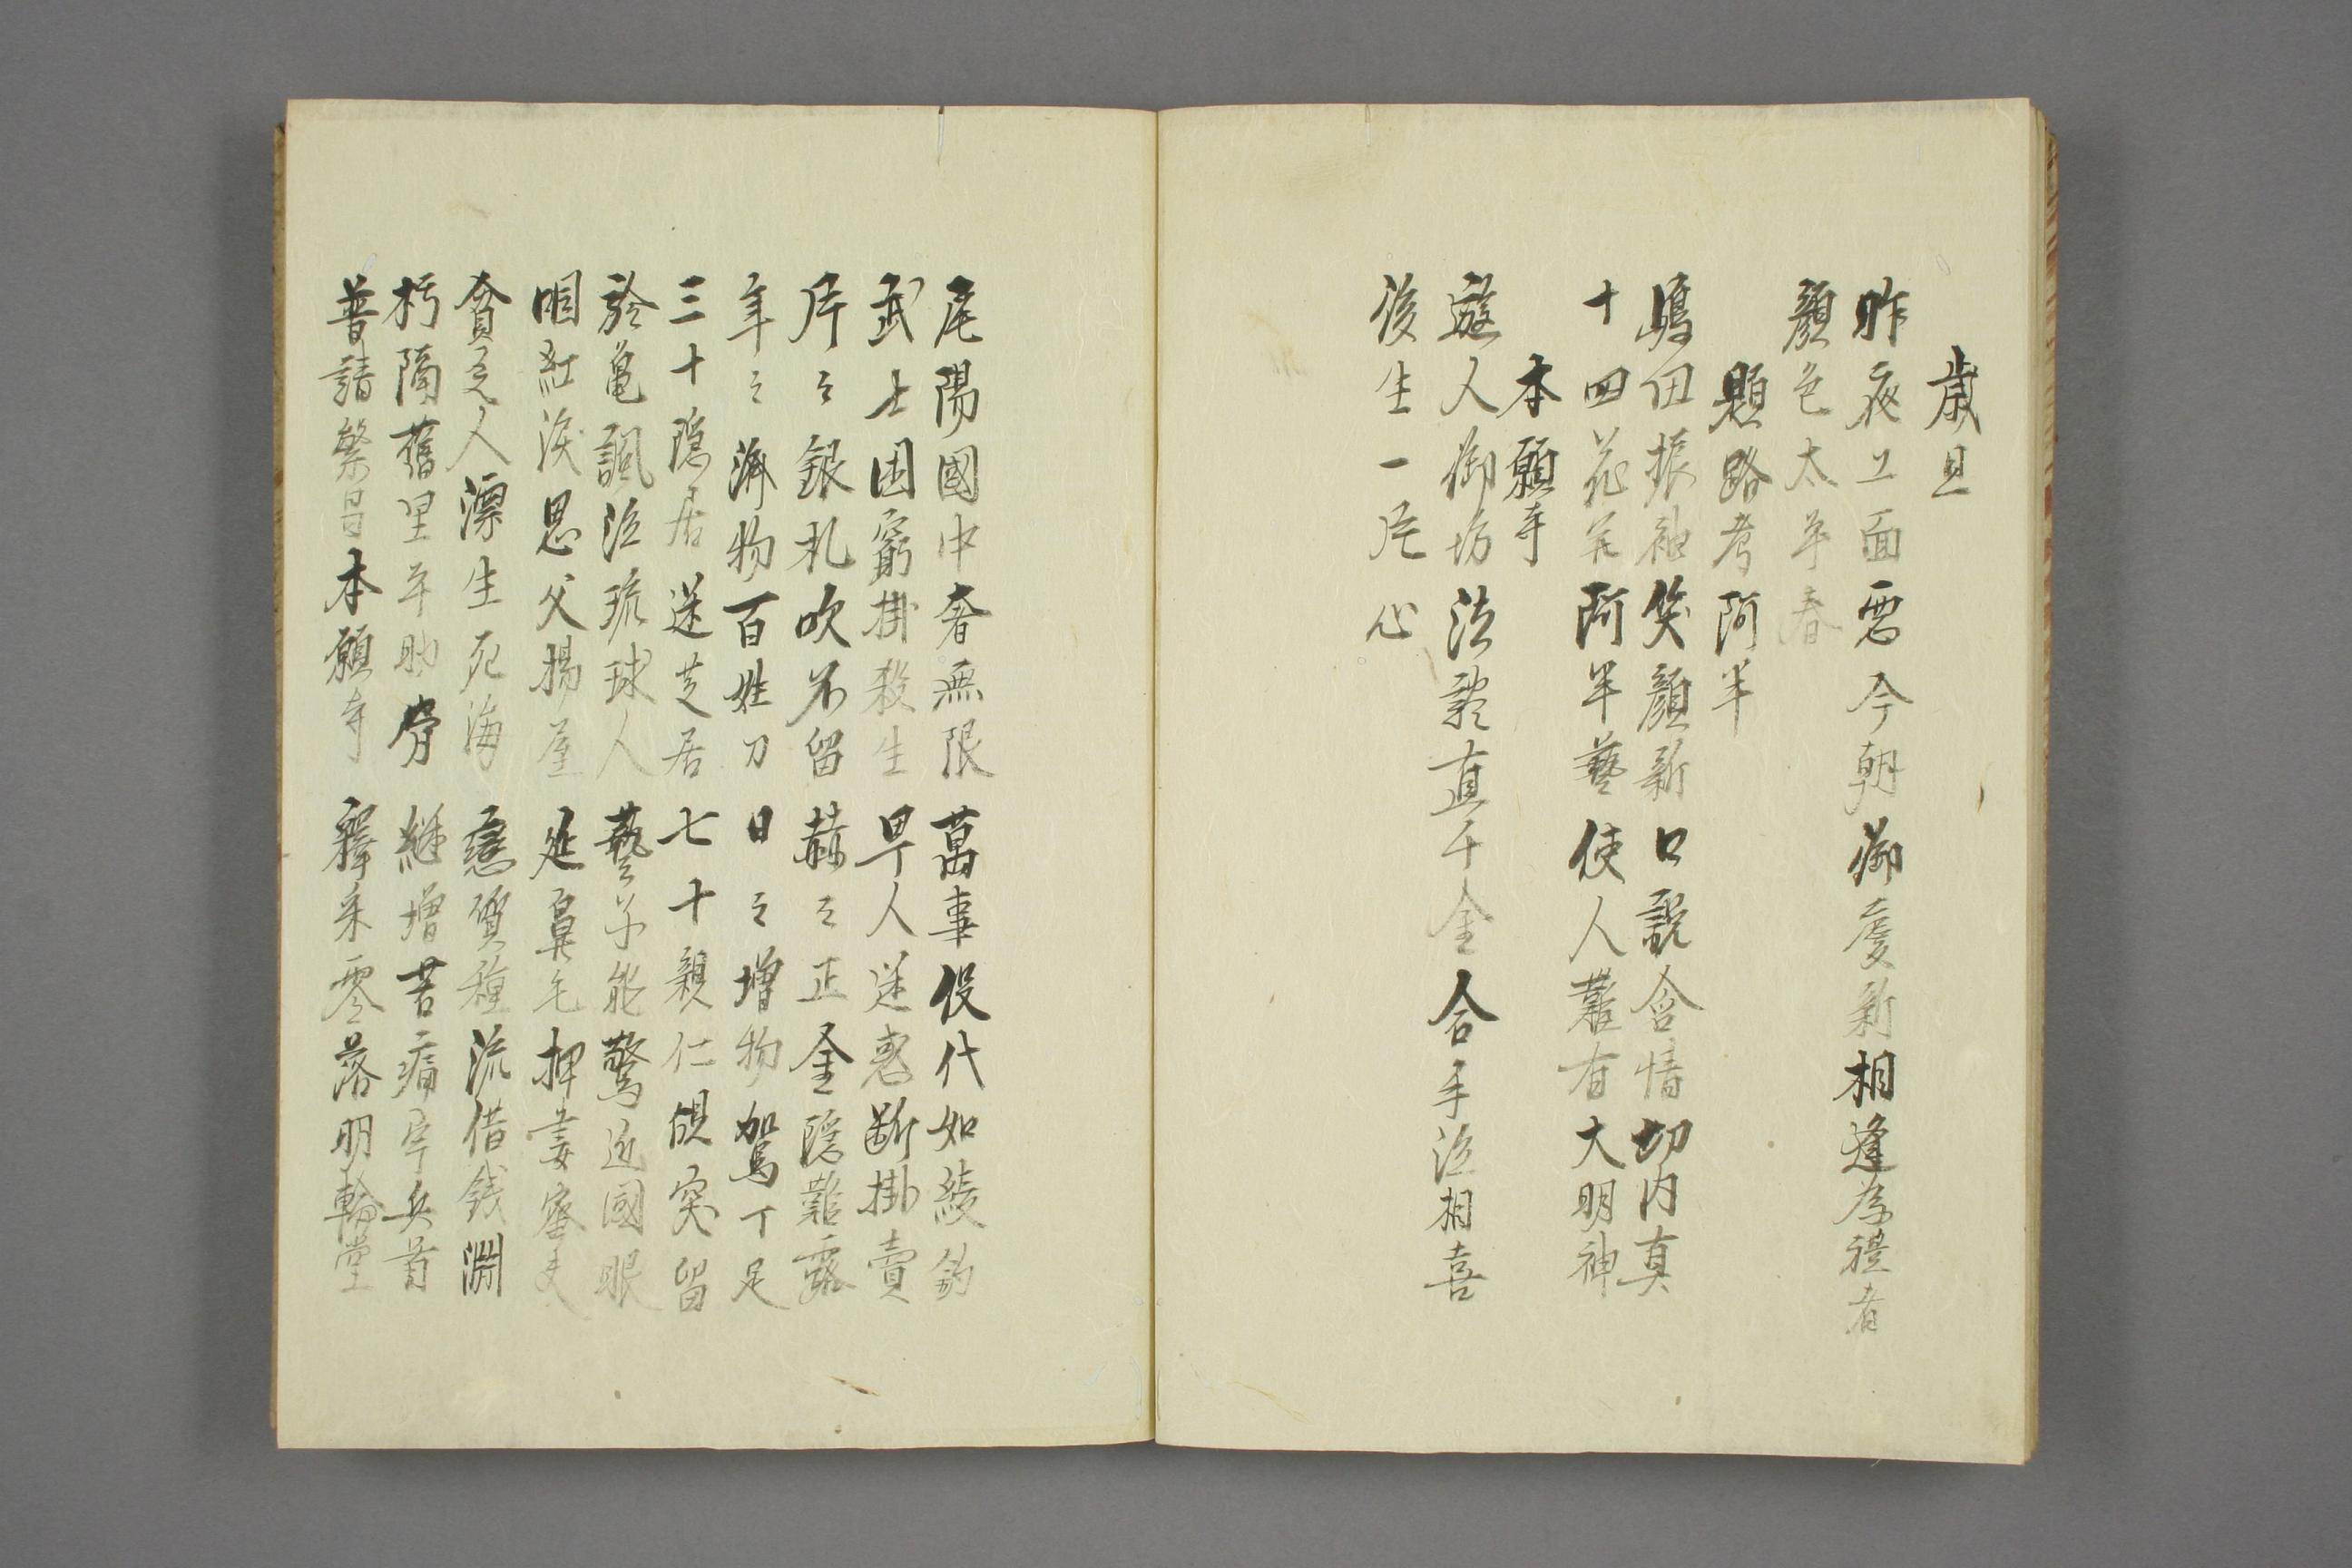 歳旦
昨夜工面悪今朝御慶新相逢為禮者
顔色太平春
題路考阿半
嶋田振袖笑顔新口説含情切内真
十四花年阿半藝使人難有大明神
本願寺
遊人御坊法談直千金合手泣相喜
後生一片心
尾陽國中奢無限萬事役代如綾釣
武士困窮掛殺生卑人迷惑断掛賣
片々銀札吹不留赫々正金隠難露
年々済物百姓刀日々増物駕丁足
三十隠居送芝居七十親仁硯突留
於亀諷泣琉球人藝子能驚近國眼
咽紅涙思父揚屋延鼻毛押妻密夫
貧乏人漂生死海 質種流借銭淵
朽隔舊里平助 継増苦痛宇兵首
普請繁昌本願寺釋采零落明輪堂